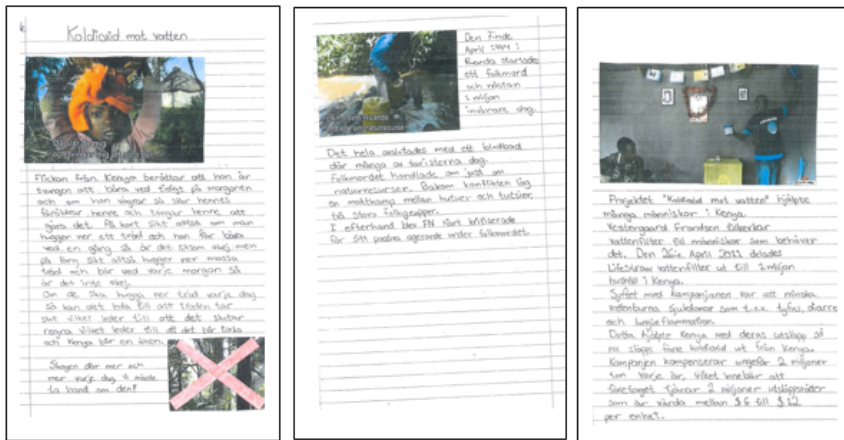 Koldioxid mot vatten
Flickan från Kenya berättar att hon är
tvungen att bära ved tidigt på morgonen
och om hon vägrar så slår hennes
föräldrar henne och tvingar henne att
göra det. På kort sikt alltså om man
hugger ner ett träd och hon får bära
ved en gång så är det såsom okej men
på lång sikt alltså hugger ner massa
träd och blir ved varje morgon så
är det inte okej.
Om de ska hugga ner träd varje dag
så kan det leda till att träden tar
slut vilket leder till att det slutar
regna vilket leder till att det blir torka
och Kenya blir en öken.
Skogen dör mer och
mer varje dag, vi måste
ta hand om den!
Den
April 1994
Rwanda startades
ett folkmord
och nästan
1 miljon
invånare dog.
Det hela avslutades med ett blodbad
där många av turisterna dog.
Folkmordet handlade om just om
naturresurser. Bakom konflikten låg
en maktkamp mellan hutuer och tutsier,
två stora folkgrupper.
I efterhand blev FN hårt kritiserade
för sitt passiva agerande under folkmordet.
Projektet "Koldioxid mot vatten" hjälpte
många människor i Kenya.
Vestergaard Frandsen tillverkar
vattenfilter till människor som behöver
det. Den 26:e April 2011 delades
Lifestraw vattenfilter ut till 1 miljon
hushåll i Kenya.
Syftet med kampanjen var att minska
vattenburna sjukdomar som t.ex. tyfus, diarre
och
Detta hjälpte Kenya med deras utsläpp så
nu släpps färre koldioxid ut från Kenya.
Kampanjen kompenserar ungefär 2 miljoner
ton varje år, vilket innebär att
företaget tjänar 2 miljoner utsläppsrätter
som är värda mellan $6 till $12
per enhet.